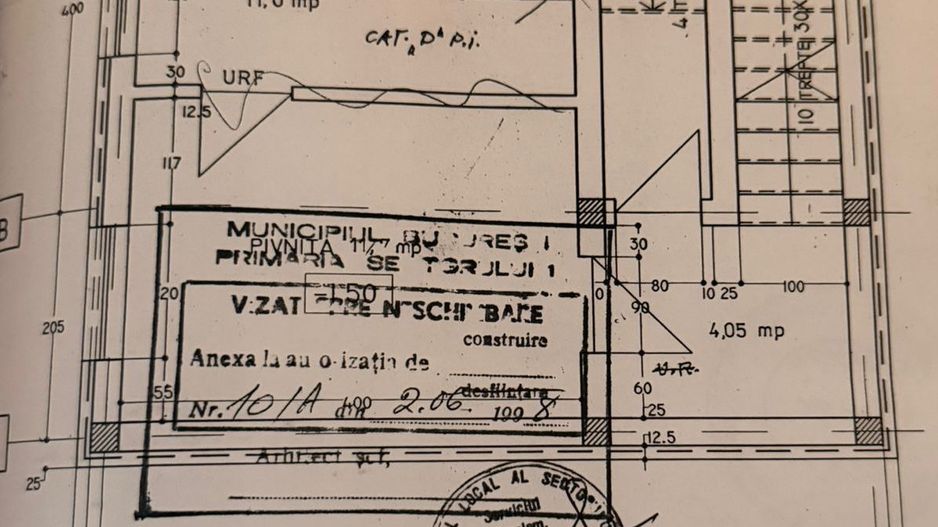 400
11,0 mp
CAT. D^A p.i.
A
4 m
10 TREPTE 30X
30
URF
12.5
117
B
MUNICIPIUL BUCUREȘTI
PIVNITA 11,7 mp
PRIMARIA SECTORULUI 1
-1.50
VIZAT SPRE NESCHIMBARE
construire
Anexa la autorizația de
desființare
Nr. 10/A din 2.06. 1998
Arhitect șef,
20
55
400
205
25
30
0
80
10 25
100
90
4,05 mp
U.R.
60
25
12.5
LOCAL AL SECTO
Serviciul